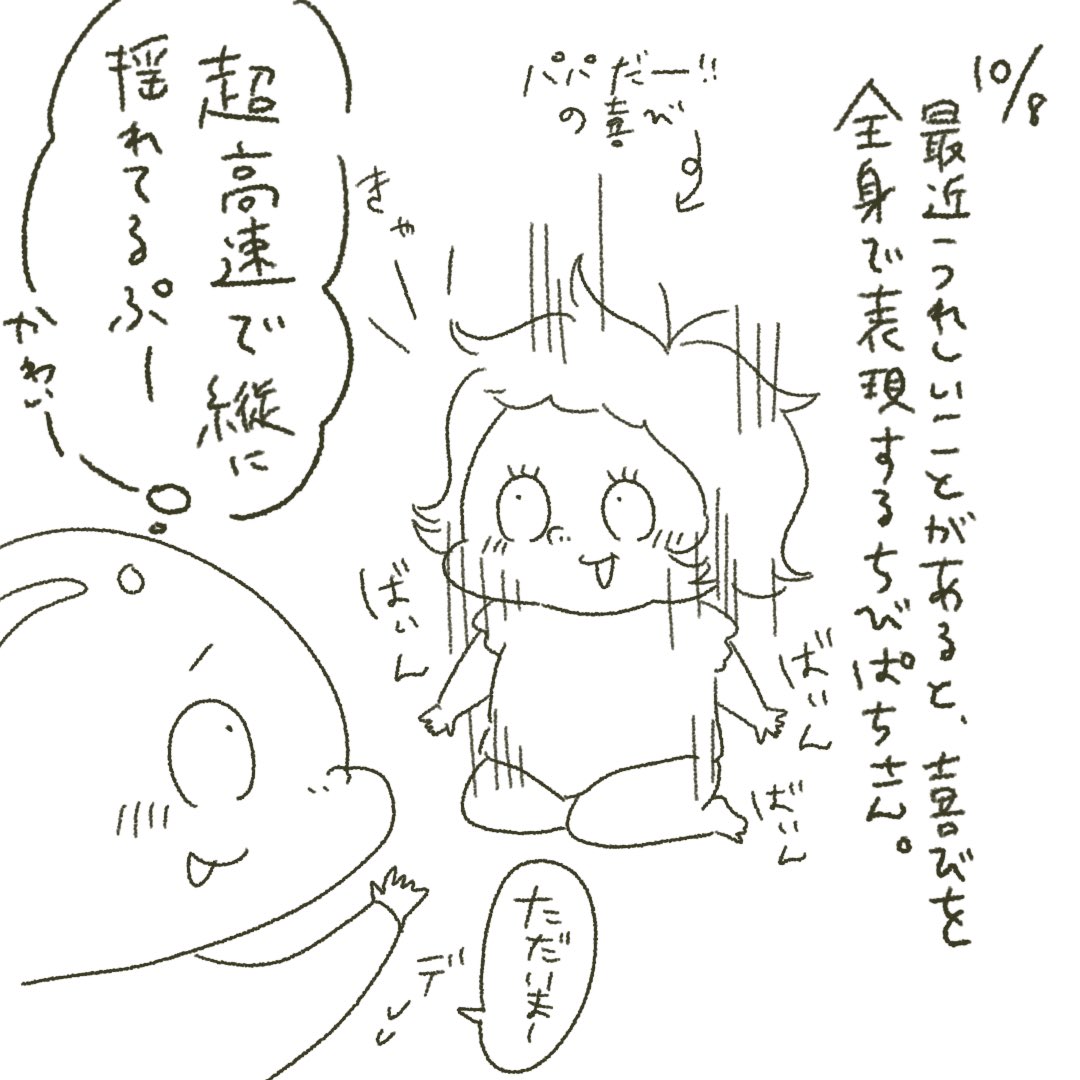 10/8
最近うれしいことがあると、喜びを
全身で表現するちびぱちさん。
パパだー!!
の喜び
きゃ
超高速で縦に
揺れてるぷー
かわい
ばいん
ばいん
ばいん
ただいまー
デ